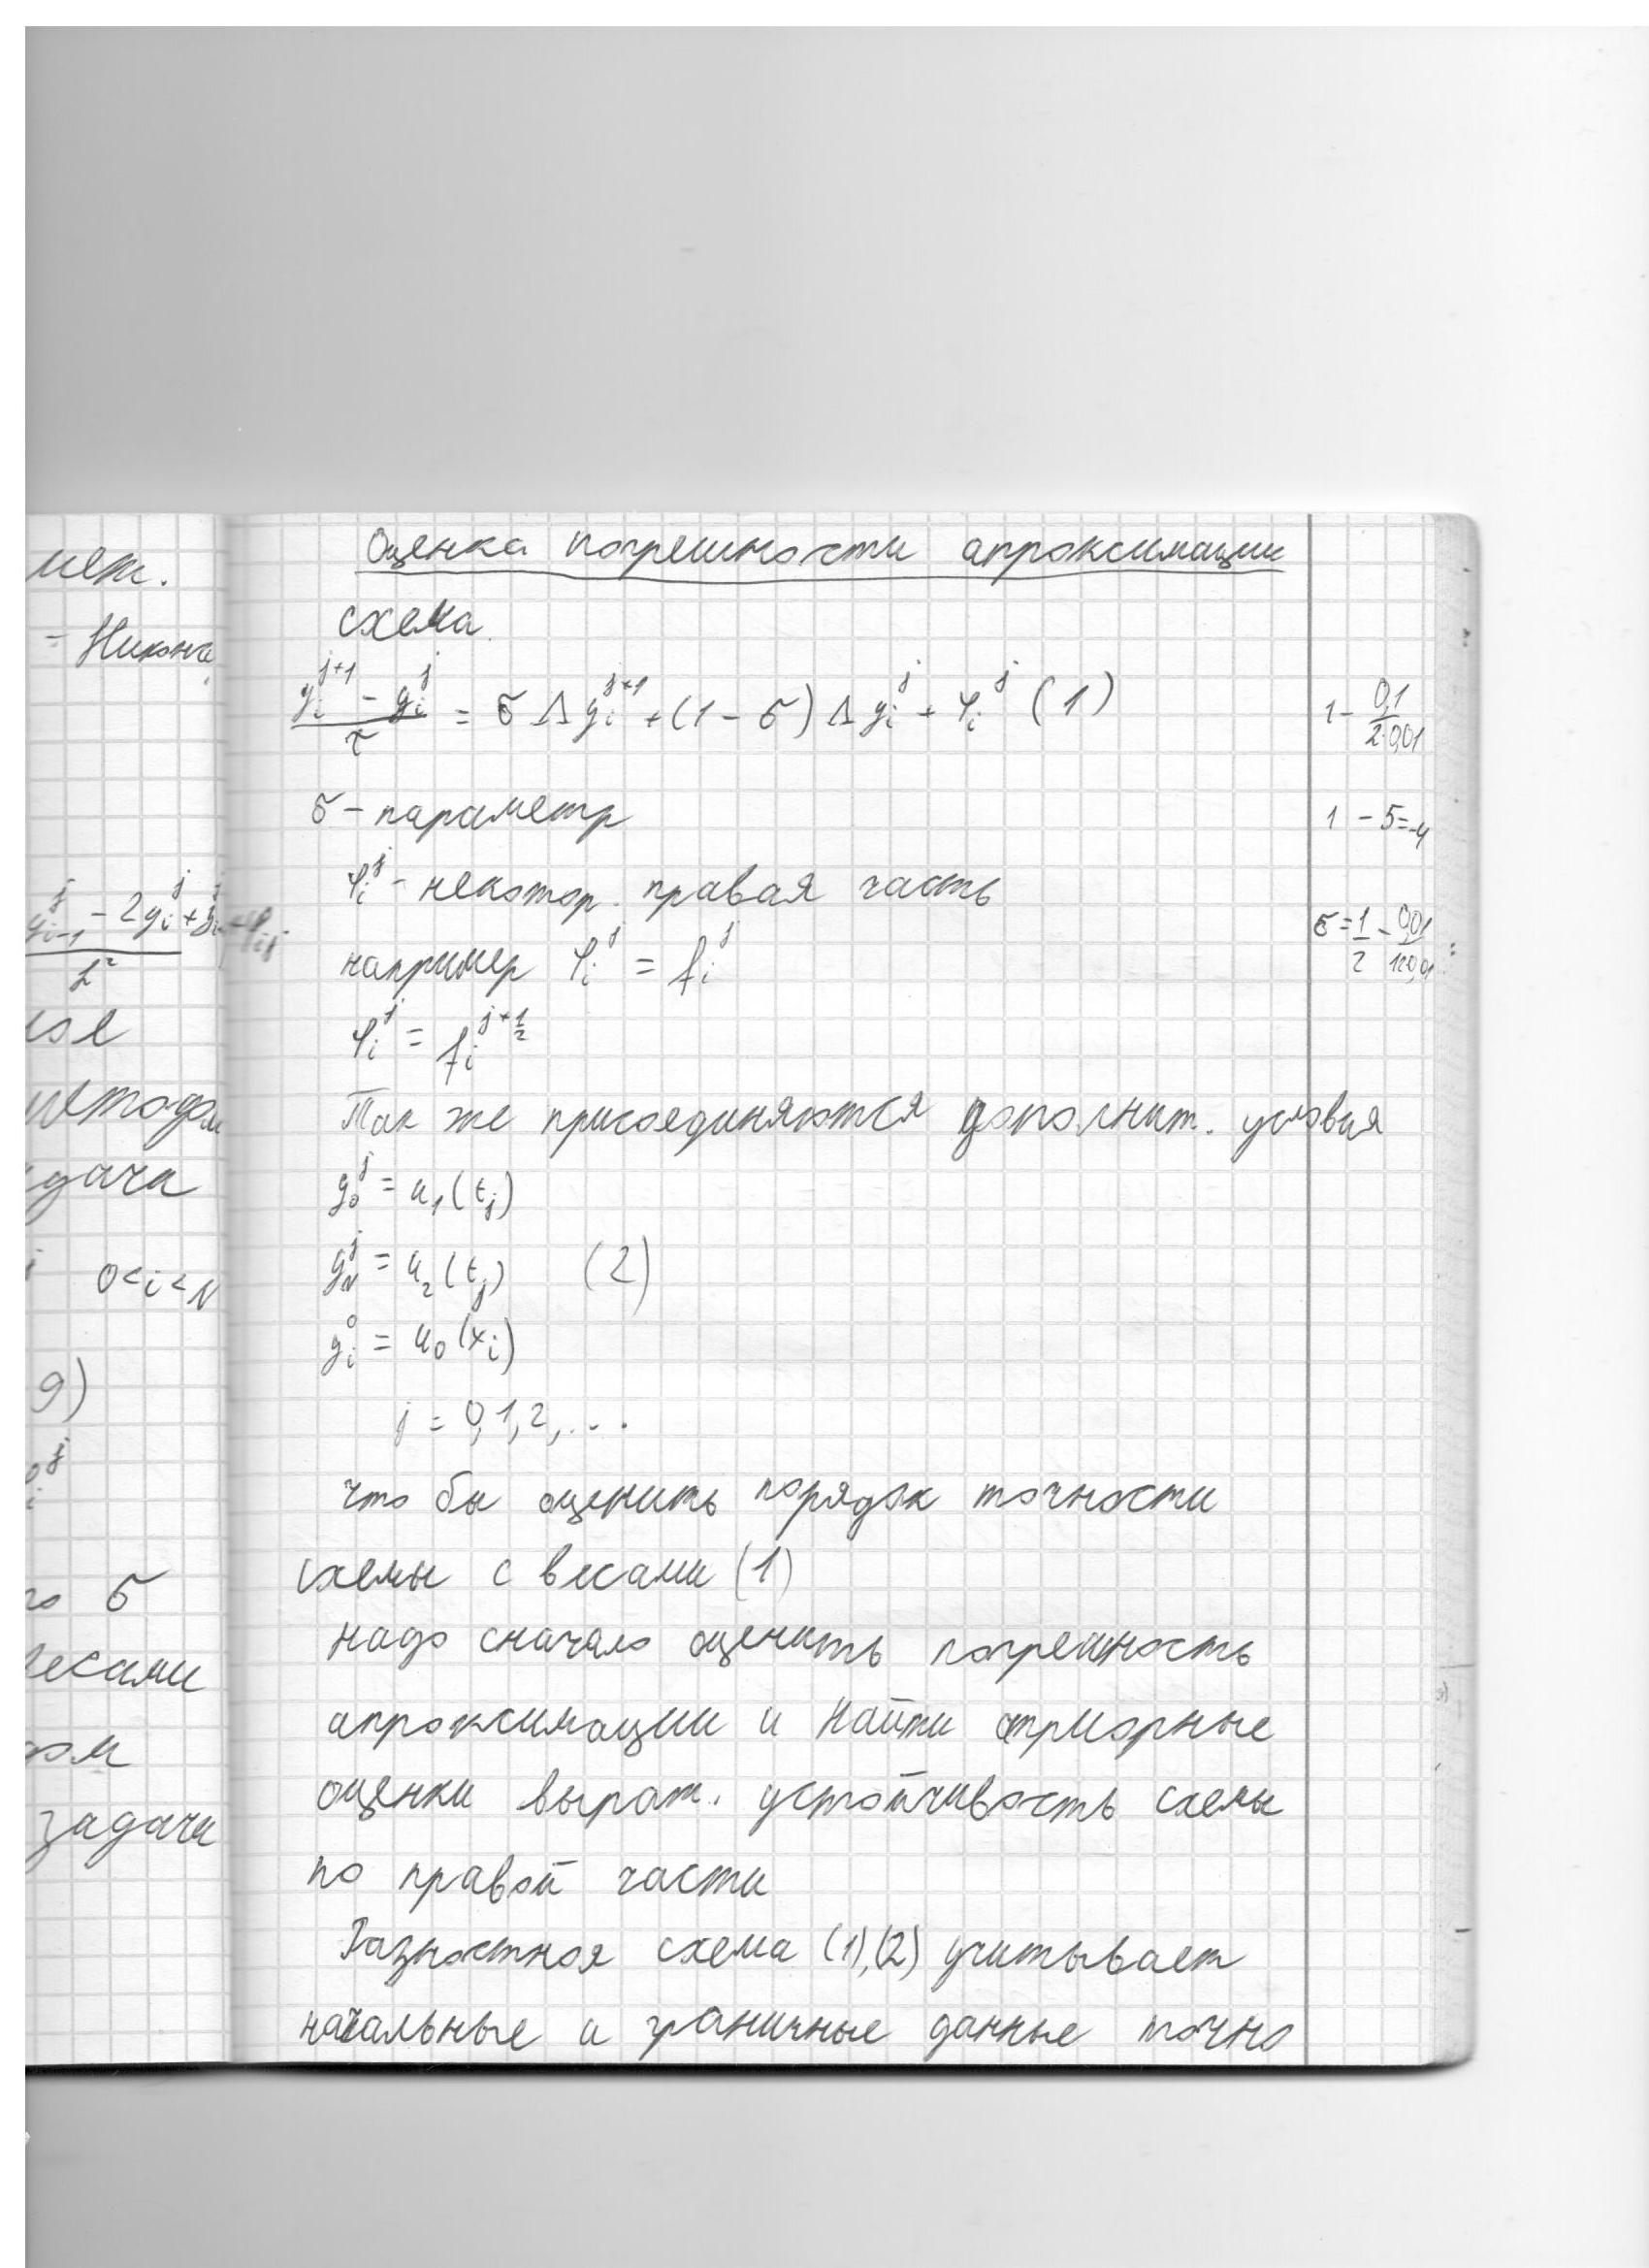 мет.
- Никона
y_{i-1}^j - 2y_i^j + y
h²
методом
дача
0<i<N
9)
σ
весами
ом
задачи
Оценка погрешности апроксимации
схема
(y_i^{j+1} - y_i^j)/τ = σ Λ y_i^{j+1} + (1 - σ) Λ y_i^j + φ_i^j (1)
σ - параметр
φ_i^j - некотор. правая часть
например φ_i^j = f_i^j
φ_i^j = f_i^{j+1/2}
Так же присоединяются дополнит. условия
y_0^j = u_1(t_j)
y_N^j = u_2(t_j) (2)
y_i^0 = u_0(x_i)
j = 0,1,2,...
что бы оценить порядок точности
схемы с весами (1)
надо сначало оценить погрешность
апроксимации и найти априорные
оценки выраж. устойчивость схемы
по правой части
Разностная схема (1),(2) учитывает
начальные и граничные данные точно
1 - 0,1/(2·0,01)
1 - 5 = -4
σ = 1/2 - 0,01/(12·0,01) =